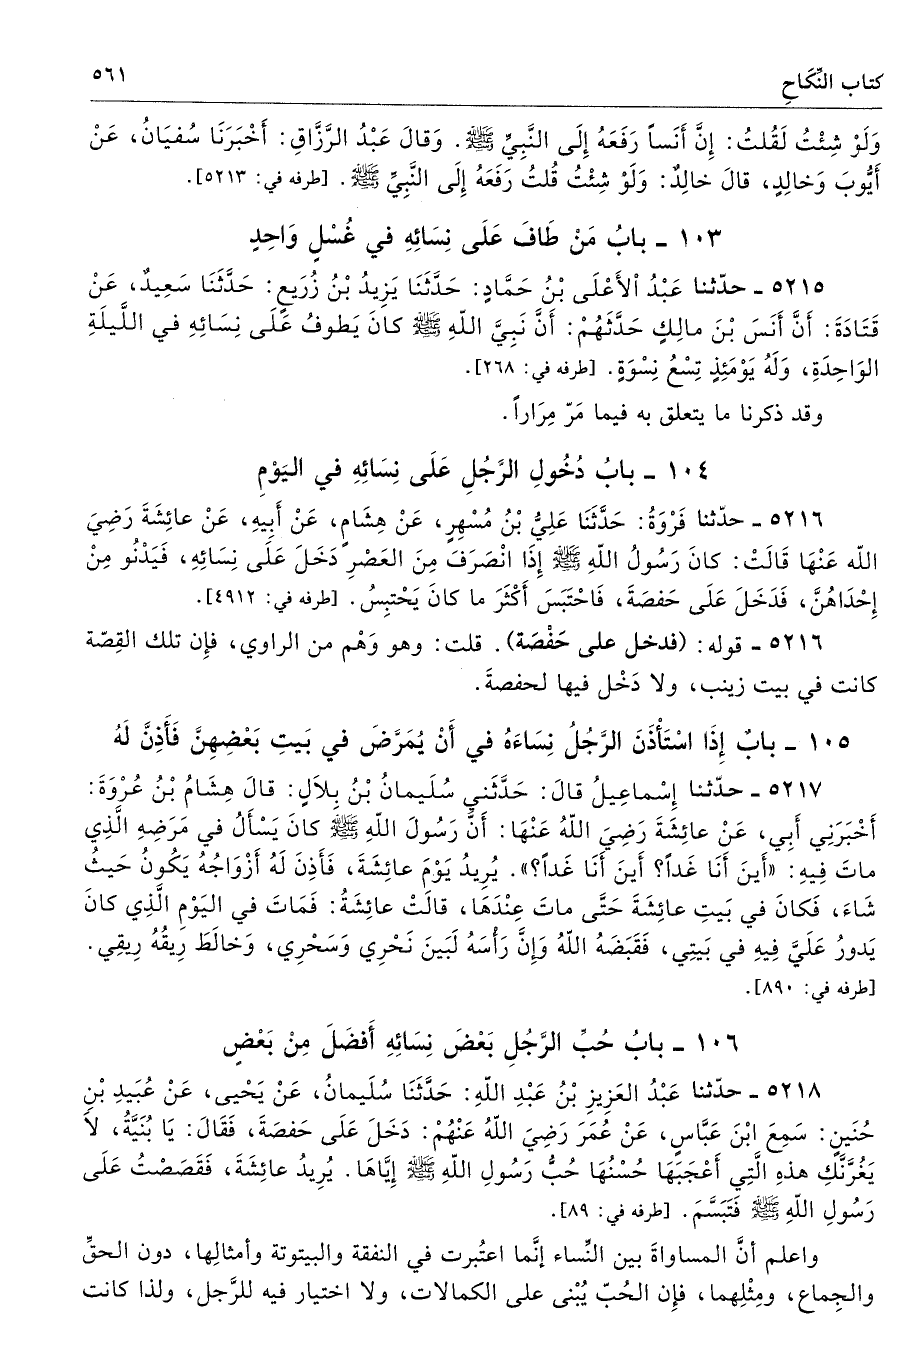 كتاب النِّكَاحِ ٥٦١
وَلَوْ شِئْتُ لَقُلتُ: إِنَّ أَنَساً رَفَعَهُ إِلَى النَّبِيِّ ﷺ. وَقالَ عَبْدُ الرَّزَّاقِ: أَخْبَرَنَا سُفيَانُ، عَنْ
أَيُّوبَ وَخالِدٍ، قالَ خالِدٌ: وَلَوْ شِئْتُ قُلتُ رَفَعَهُ إِلَى النَّبِيِّ ﷺ. [طرفه في: ٥٢١٣].
١٠٣ - بابُ مَنْ طَافَ عَلَى نِسَائِهِ في غُسْلٍ وَاحِدٍ
٥٢١٥ - حدّثنا عَبْدُ الأَعْلَى بْنُ حَمَّادٍ: حَدَّثَنَا يَزِيدُ بْنُ زُرَيعٍ: حَدَّثَنَا سَعِيدٌ، عَنْ
قَتَادَةَ: أَنَّ أَنَسَ بْنَ مالِكٍ حَدَّثَهُمْ: أَنَّ نَبِيَّ اللّهِ ﷺ كانَ يَطوفُ عَلَى نِسَائِهِ في اللَّيلَةِ
الوَاحِدَةِ، وَلَهُ يَوْمَئِذٍ تِسْعُ نِسْوَةٍ. [طرفه في: ٢٦٨].
وقد ذكرنا ما يتعلق به فيما مَرّ مِرَاراً.
١٠٤ - بابُ دُخُولِ الرَّجُلِ عَلَى نِسَائِهِ في اليَوْمِ
٥٢١٦ - حدّثنا فَرْوَةُ: حَدَّثَنَا عَلِيُّ بْنُ مُسْهِرٍ، عَنْ هِشَامٍ، عَنْ أَبِيهِ، عَنْ عائِشَةَ رَضِيَ
اللّه عَنْهَا قَالَتْ: كانَ رَسُولُ اللّهِ ﷺ إِذَا انْصَرَفَ مِنَ العَصْرِ دَخَلَ عَلَى نِسَائِهِ، فَيَدْنُو مِنْ
إِحْدَاهُنَّ، فَدَخَلَ عَلَى حَفصَةَ، فَاحْتَبَسَ أَكْثَرَ ما كانَ يَحْتبِسُ. [طرفه في: ٤٩١٢].
٥٢١٦ - قوله: (فدخل على حَفْصَة). قلت: وهو وَهْم من الراوي، فإن تلك القِصّة
كانت في بيت زينب، ولا دَخْل فيها لحفصةَ.
١٠٥ - بابٌ إِذَا اسْتَأْذَنَ الرَّجُلُ نِسَاءَهُ في أَنْ يُمَرَّضَ في بَيتِ بَعْضِهِنَّ فَأَذِنَّ لَهُ
٥٢١٧ - حدّثنا إِسْماعِيلُ قالَ: حَدَّثَني سُلَيمانُ بْنُ بِلاَلٍ: قالَ هِشَامُ بْنُ عُرْوَةَ:
أَخْبَرَنِي أَبِي، عَنْ عائِشَةَ رَضِيَ اللّهُ عَنْهَا: أَنَّ رَسُولَ اللّهِ ﷺ كانَ يَسْأَلُ في مَرَضِهِ الَّذِي
ماتَ فِيهِ: «أَينَ أَنَا غَداً؟ أَينَ أَنَا غَداً؟». يُرِيدُ يَوْمَ عائِشَةَ، فَأَذِنَ لَهُ أَزْوَاجُهُ يَكُونُ حَيثُ
شَاءَ، فَكانَ في بَيتِ عائِشَةَ حَتَّى ماتَ عِنْدَهَا، قالَتْ عائِشَةُ: فَمَاتَ في اليَوْمِ الَّذِي كانَ
يَدورُ عَلَيَّ فِيهِ في بَيتِي، فَقَبَضَهُ اللّهُ وَإِنَّ رَأْسَهُ لَبَينَ نَحْرِي وَسَحْرِي، وَخالَطَ رِيقُهُ رِيقِي.
[طرفه في: ٨٩٠].
١٠٦ - بابُ حُبِّ الرَّجُلِ بَعْضَ نِسَائِهِ أَفضَلَ مِنْ بَعْضٍ
٥٢١٨ - حدّثنا عَبْدُ العَزِيزِ بْنُ عَبْدِ اللّهِ: حَدَّثَنَا سُلَيمانُ، عَنْ يَحْيى، عَنْ عُبَيدِ بْنِ
حُنَينٍ: سَمِعَ ابْنَ عَبَّاسٍ، عَنْ عُمَرَ رَضِيَ اللّهُ عَنْهُمْ: دَخَلَ عَلَى حَفصَةَ، فَقَالَ: يَا بُنَيَّةُ، لاَ
يَغُرَّنَّكِ هذهِ الَّتِي أَعْجَبَهَا حُسْنُهَا حُبُّ رَسُولِ اللّهِ ﷺ إِيَّاهَا. يُرِيدُ عائِشَةَ، فَقَصَصْتُ عَلَى
رَسُولِ اللّهِ ﷺ فَتَبَسَّمَ. [طرفه في: ٨٩].
واعلم أنَّ المساواةَ بين النِّساء إنَّما اعتُبرت في النفقة والبيتوتة وأمثالِها، دون الحقِّ
والجِماع، ومِثْلِهما، فإِن الحُبّ يُبْنى على الكمالات، ولا اختيار فيه للرَّجل، ولذا كانت